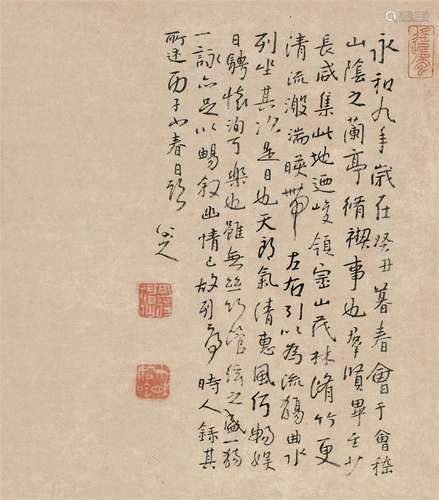 永和九年歲在癸丑暮春會于會稽
山陰之蘭亭脩禊事也羣賢畢至少
長咸集此地迺峻領崇山茂林脩竹更
清流激湍暎帶左右引以為流觴曲水
列坐其次是日也天朗氣清惠風和暢娛
目騁懷洵可樂也雖無絲竹管絃之盛一觴
一詠亦足以暢敘幽情已故列序時人錄其
所述丙子小春日題 八大山人